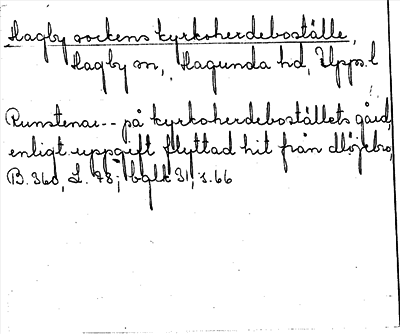 Hagby sockens kyrkoherdeboställe,
Hagby sn, Hagunda hd, Upps. l
Runstenar -- på kyrkoherdeboställets gård,
enligt uppgift flyttad hit från
B. 360, L. 78; balk 31, s. 66